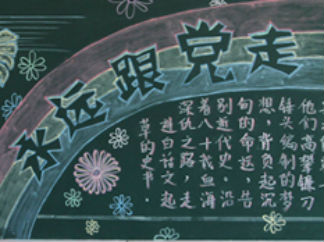 永远跟党走
他们高举镰刀
锤头编制的梦
想，背负起沉
旬的命运，告
别近代史。沿
着八十载血海
深仇之路，走
进白话文起
草的史书。